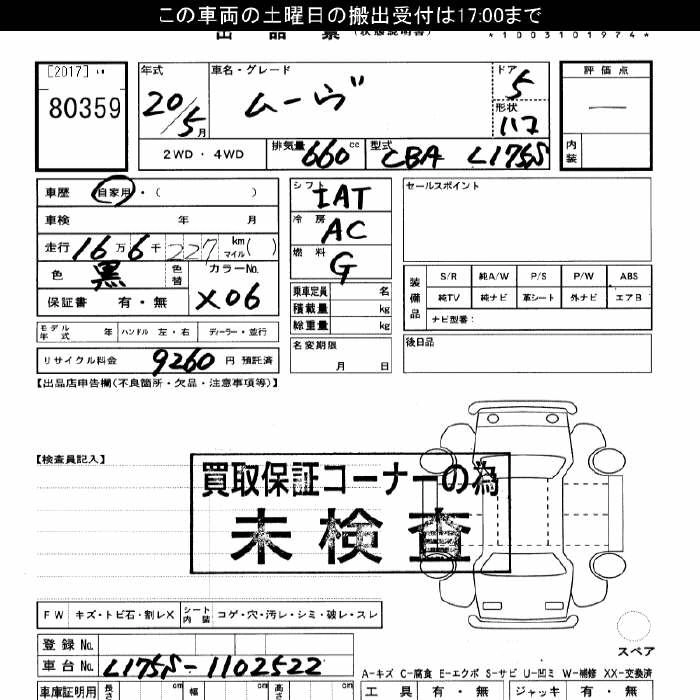 この車両の土曜日の搬出受付は17:00まで
出品票 (状態説明書)
*1003101974*
[2017]
80359
年式 車名・グレード ドア 評価点
20/5月 ムーヴ 5 —
形状
117
2WD・4WD 排気量 660cc 型式 CBA L175S 内装
車歴 自家用・( )
シフト IAT
セールスポイント
車検 年 月
冷房 AC
走行 16万6千227km マイル( )
燃料 G
色 黒 色替 カラーNo. X06
保証書 有・無
乗車定員 名
積載量 kg
総重量 kg
装備品 S/R 純A/W P/S P/W ABS
純TV 純ナビ 革シート 外ナビ エアB
ナビ型番:
モデル年式 年 ハンドル 左・右 ディーラー・並行
名変期限 月 日
後日品
リサイクル料金 9260 円 預託済
【出品店申告欄(不良箇所・欠品・注意事項等)】
【検査員記入】
買取保証コーナーの為
未検査
FW キズ・トビ石・割レX シート内装 コゲ・穴・汚レ・シミ・破レ・スレ
スペア
登録No.
車台No. L175S-1102522
A-キズ C-腐食 E-エクボ S-サビ U-凹ミ W-補修 XX-交換済
車庫証明用 長さ cm 幅 cm 高さ cm 工具 有・無 ジャッキ 有・無